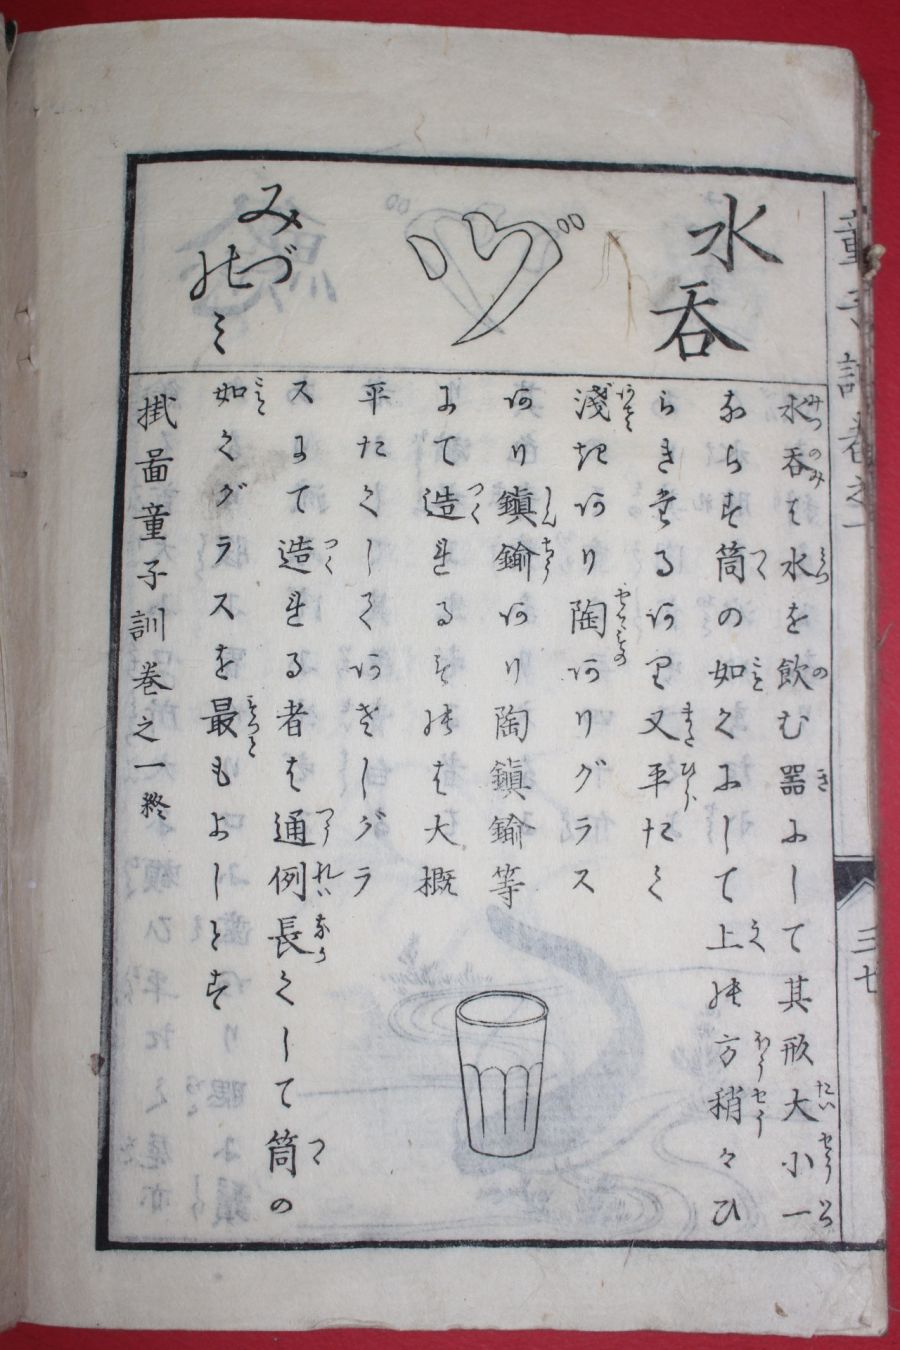 水呑
ヅ
みづのミ
水呑は水を飲む器にして其形大小一
ならず筒の如くにして上の方稍々ひ
らきたるあり又平たく
淺きあり陶ありグラス
あり鎮鍮あり陶鎮鍮等
にて造れるものは大概
平たくしてあさしグラ
スにて造れる者は通例長くして筒の
如くグラスを最もよしとす
掛啚童子訓巻之一終